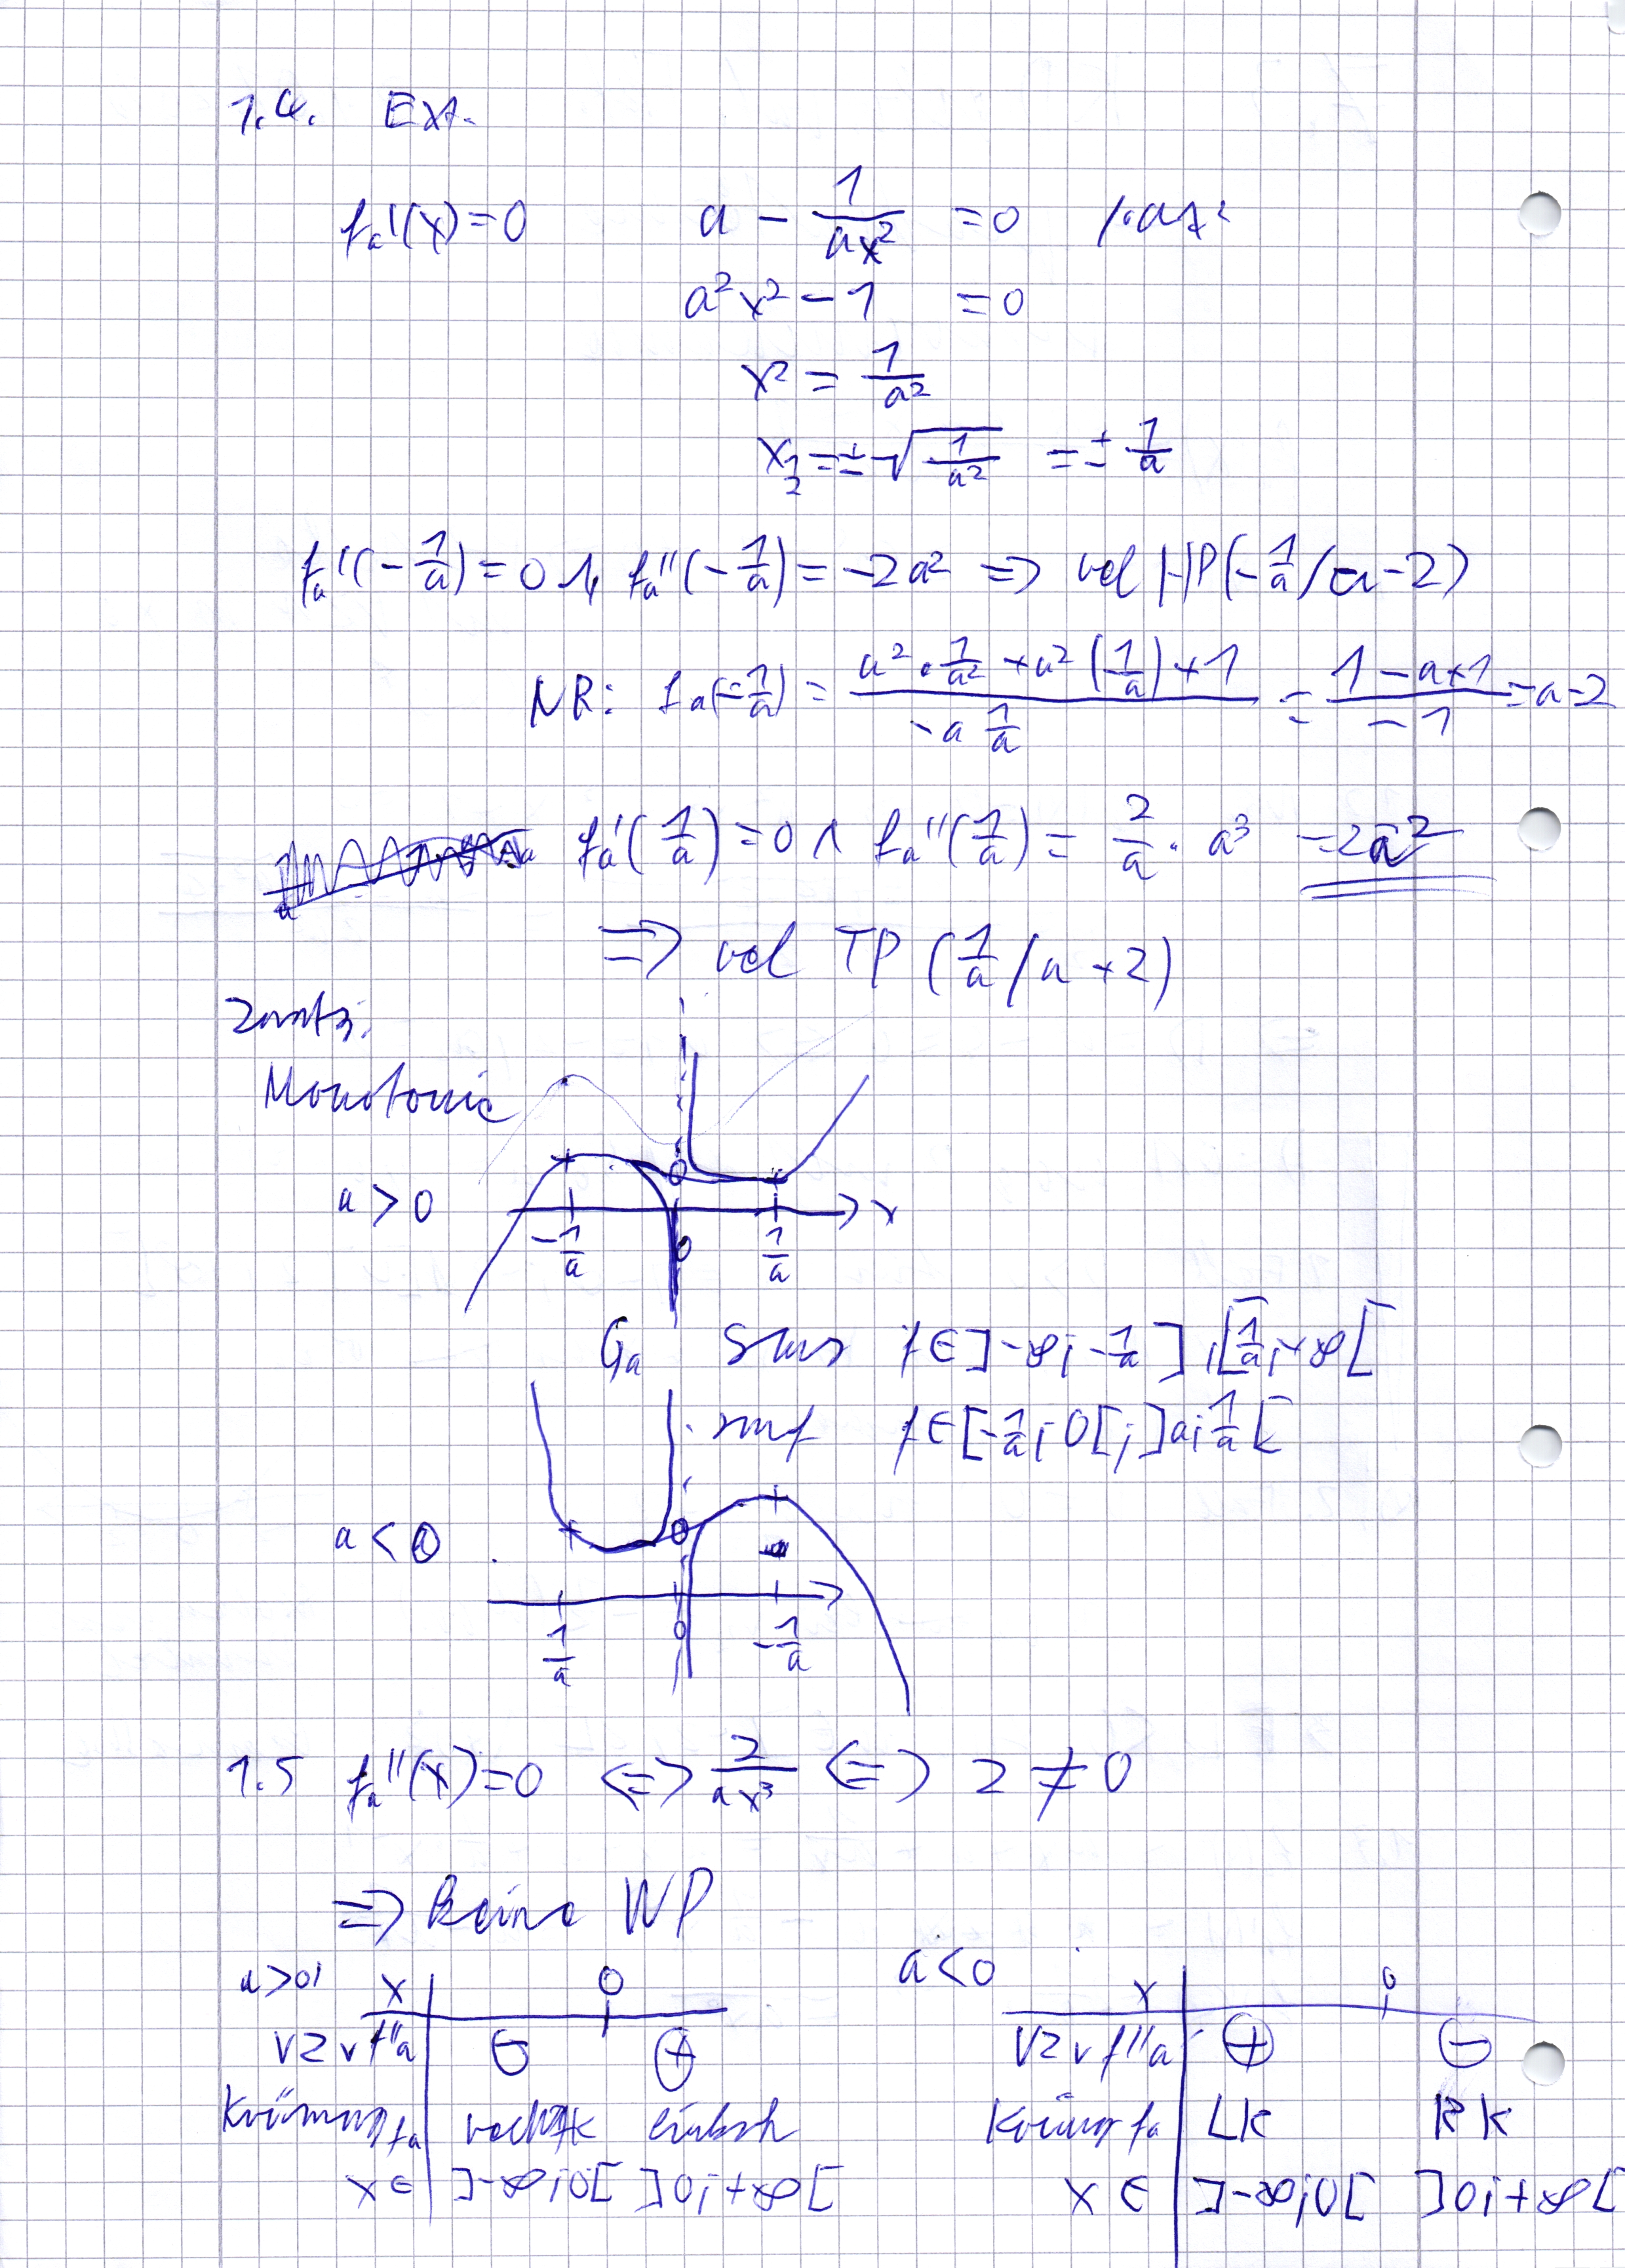 1.4. Ext.
fa'(x)=0 a - 1/(ax²) =0 /·ax²
a²x² - 1 =0
x² = 1/a²
x1/2 = ± √(1/a²) = ± 1/a
fa'(-1/a) = 0 ∧ fa''(-1/a) = -2a² => rel HP(-1/a / a-2)
NR: fa(-1/a) = (a²·1/a² + a²(-1/a) + 1)/(-a 1/a) = (1-a+1)/(-1) = a-2
fa'(1/a) = 0 ∧ fa''(1/a) = 2/a · a³ = 2a²
=> rel TP (1/a / a+2)
Zusatz:
Monotonie
a > 0 x
-1/a 0 1/a
Ga sms f∈]-∞; -1/a] ; [1/a; +∞[
smf f∈[-1/a; 0[; ]a; 1/a[
a < 0
1/a 0 -1/a
1.5 fa''(x)=0 <=> 2/(ax³) <=> 2 ≠ 0
=> keine WP
a>0: x 0
VZ v f''a ⊖ ⊕
Krümmung fa
x∈ ]-∞;0[ ]0;+∞[
a<0 x 0
VZ v f''a ⊕ ⊖
fa LK RK
x ∈ ]-∞;0[ ]0;+∞[